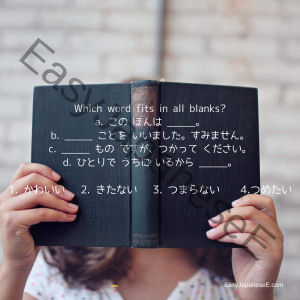 Which word fits in all blanks?
a. この ほんは _____。
b. _____ ことを いいました。すみません。
c. _____ もの ですが、つかって ください。
d. ひとりで うちに いるから _____。
1. かわいい 2. きたない 3. つまらない 4.つめたい
EasyJapaneseE.com
EasyJapaneseE.com